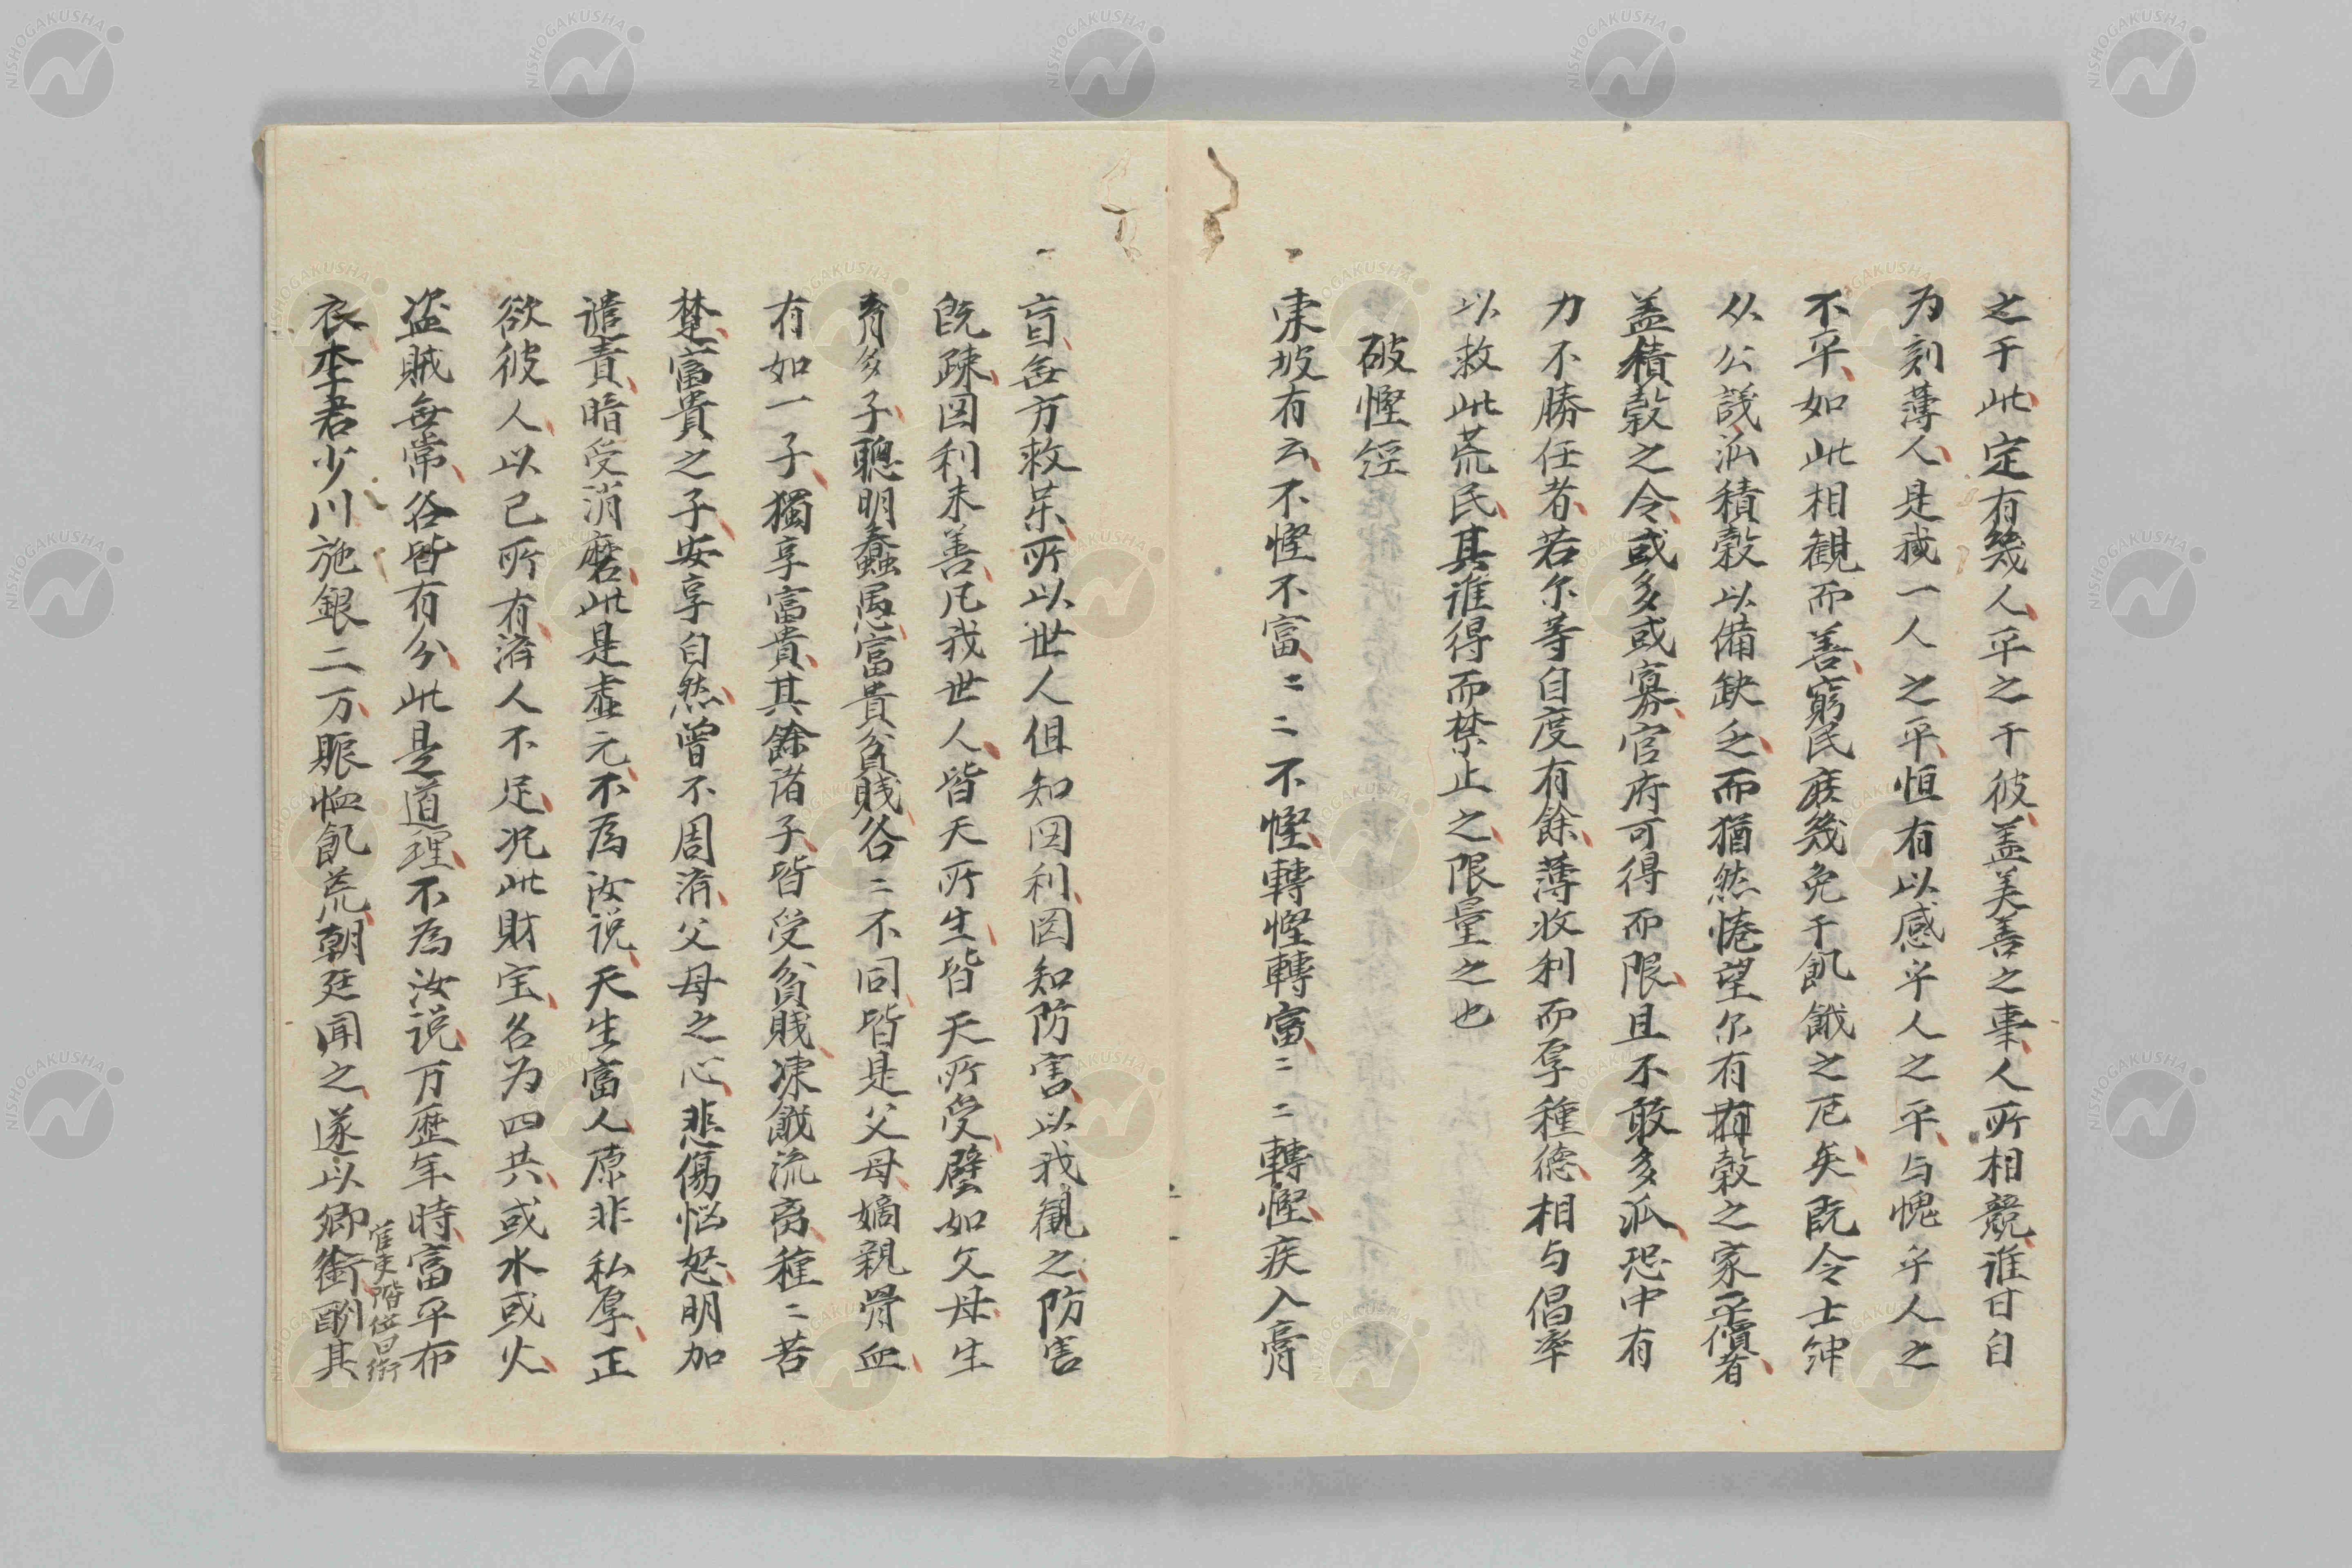 之于此定有幾人平之于彼盖美善之事人所相競誰甘自
为刻薄人是減一人之平恒有以感乎人之平与愧乎人之
不平如此相観而善窮民庶幾免于飢餓之厄矣既令士紳
从公議派積穀以備缺乏而猶然惓望尔有有穀之家平價者
盖積穀之令或多或寡官府可得而限且不敢多派恐中有
力不勝任者若尔等自度有餘薄收利而厚種德相与倡率
以救此荒民其谁得而禁止之限量之也
破慳經
東坡有云不慳不富二二不慳轉慳轉富二二轉慳疾入膏
肓無方救某所以世人但知図利図知防害以我観之防害
既疎図利未善凡我世人皆天所生皆天所受譬如父母生
育多子聰明蠢愚富貴貧賤各二不同皆是父母嫡親骨血
有如一子獨享富貴其餘諸子皆受貧賤凍餓流离種二苦
楚富貴之子安享自然曾不周済父母之心悲傷悩怒明加
譴責暗受消磨此是虚元不為汝说天生富人原非私厚正
欲彼人以己所有済人不足况此財宝名为四共或水或火
盗賊無常各皆有分此是道理不為汝说万歴年時富平布
衣李君少川施銀二万賑恤飢荒朝廷聞之遂以卿銜酬其
官吏階位曰銜